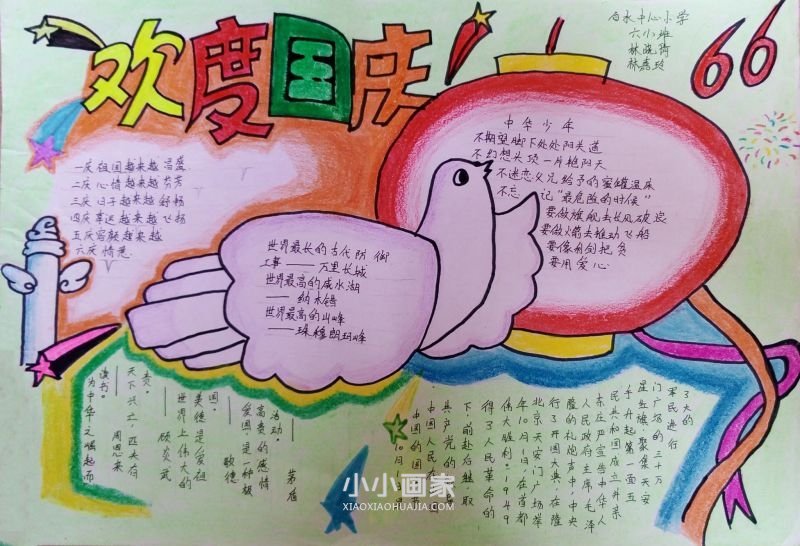 欢度国庆
66
白水中心小学
六小班
林晓琦
林嘉玲
一庆祖国越来越昌盛
二庆心情越来越芬芳
三庆日子越来越舒畅
四庆幸运越来越飞扬
五庆容颜越来越
六庆情意
世界最长的古代防御
工事——万里长城
世界最高的咸水湖
——纳木错
世界最高的山峰
——珠穆朗玛峰
中华少年
不期望脚下处处阳关道
不幻想头顶一片艳阳天
不迷恋父兄给予的蜜罐温床
不忘记“最危险的时候”
要做旗舰去长风破浪
要做火箭去推动飞船
要像利剑把负
要用爱心
为中华之崛起而
读书。
——周恩来
天下兴亡,匹夫有
责。
——顾炎武
世界上伟大的
美德是爱祖
国。
——歌德
爱国是一种极
高贵的感情
活动。
——茅盾
10月
中国的国
中国人民在
共产党的
下,前赴后继取
得了人民革命的
伟大胜利。1949
年10月1日,在首都
北京天安门广场举
行了开国大典,在隆
隆的礼炮声中,中央
人民政府主席毛泽
东庄严宣告中华人
民共和国成立并亲
手升起第一面五
星红旗聚集天安
门广场的三十万
军民进行
了大的
小小画家
XIAOXIAOHUAJIA.COM